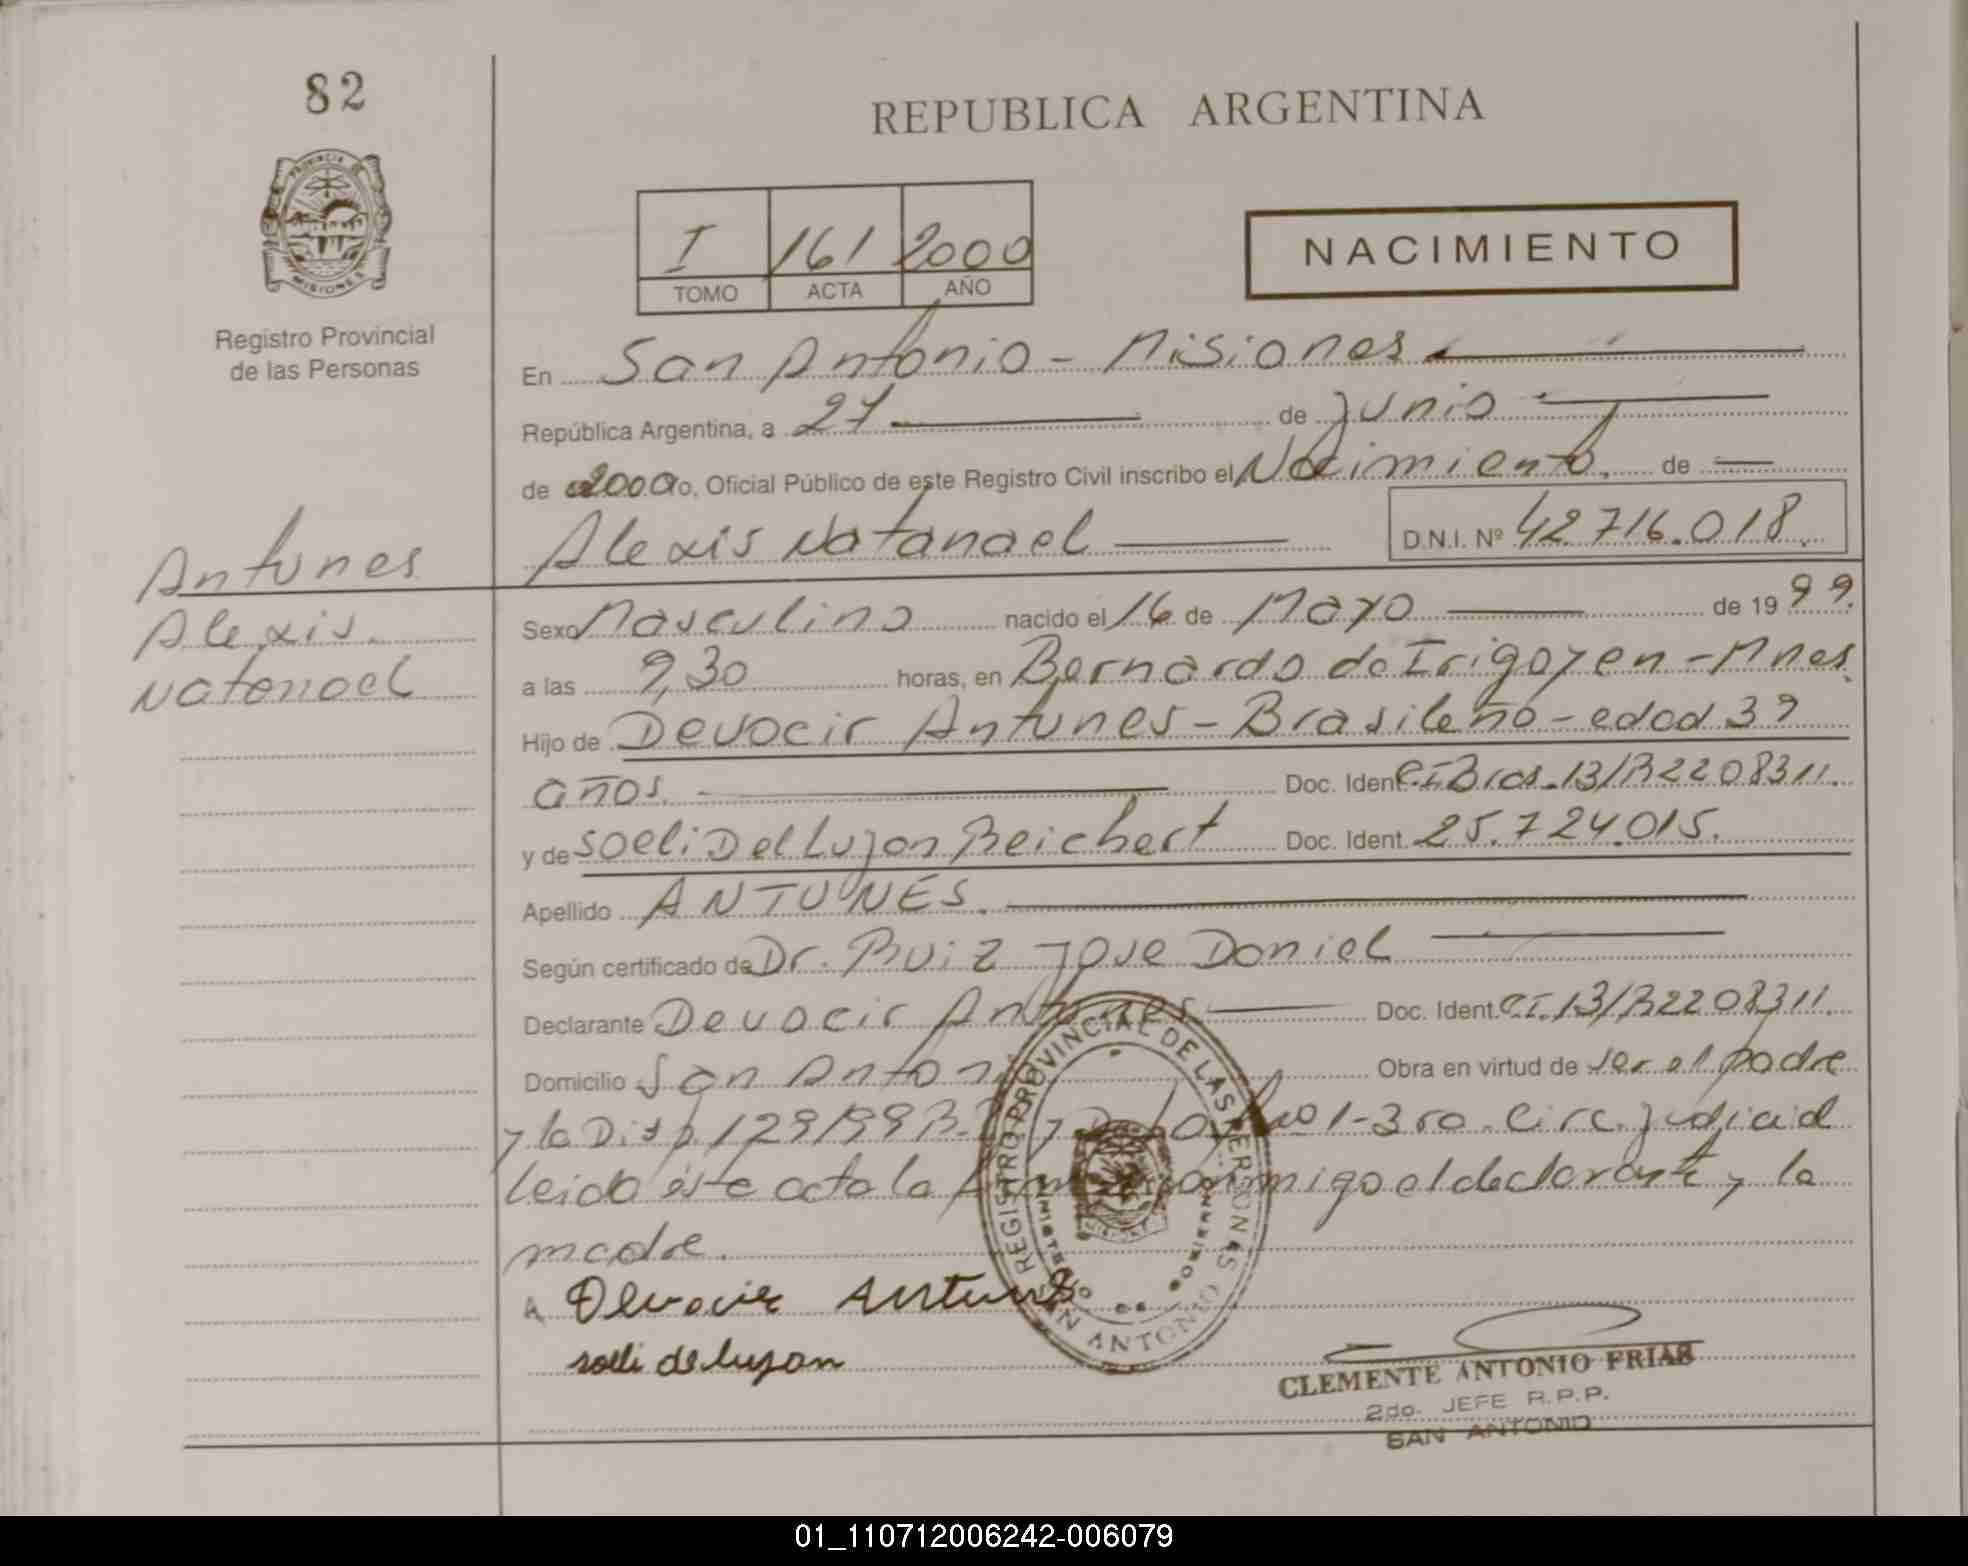 82
REPUBLICA ARGENTINA
PROVINCIA DE
MISIONES
Registro Provincial
de las Personas
I 161 2000
TOMO ACTA AÑO
NACIMIENTO
En San Antonio - Misiones
República Argentina, a 27 de junio
de 2000 o, Oficial Público de este Registro Civil inscribo el Nacimiento. de
Alexis Natanael D.N.I. Nº 42.716.018.
Antunes
Alexis
Natanael
Sexo Masculino nacido el 16 de Mayo de 1999.
a las 9,30 horas, en Bernardo de Irigoyen - Mnes.
Hijo de Devocir Antunes - Brasileño - edad 39
años. Doc. Ident. C.I Bras. 13/R2208311.
y de Soeli Del Lujan Reichert Doc. Ident. 25.724.015.
Apellido ANTUNES.
Según certificado de Dr. Ruiz Jose Daniel
Declarante Devocir Antunes Doc. Ident. C.I. 13/R2208311.
Domicilio San Antoni Obra en virtud de ser el padre
y la Disp. 129/99 R. y Nº 1 - 3ro. Circ. judicial
leida este acta la conmigo el declarante y la
madre.
Devocir Antunes
soeli de lujan
REGISTRO PROVINCIAL DE LAS PERSONAS
SAN ANTONIO
CLEMENTE ANTONIO FRIAS
2do. JEFE R.P.P.
SAN ANTONIO
01_110712006242-006079